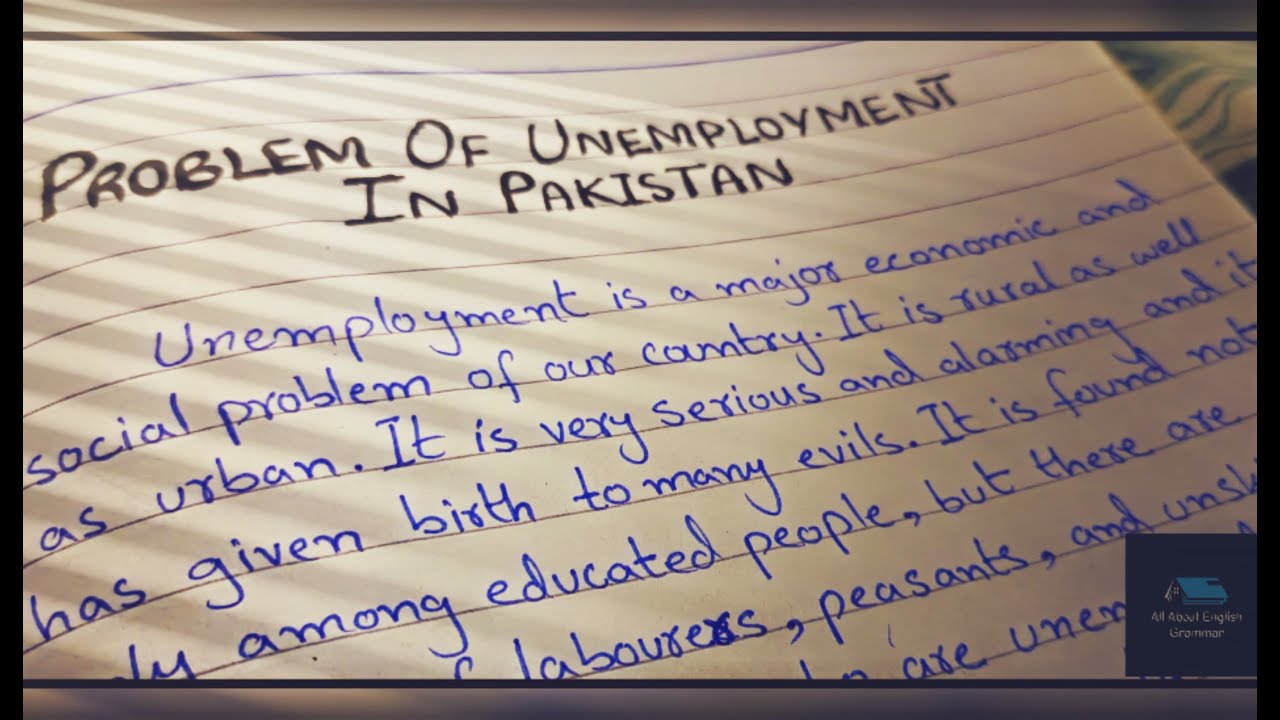 PROBLEM OF UNEMPLOYMENT
IN PAKISTAN
Unemployment is a major economic and
social problem of our camtry. It is rural as well
as urban. It is very serious and alarming and it
has given birth to many evils. It is found not
ly among educated people, but there are
labourers, peasants, and unsk
are unem
All About English
Grammar